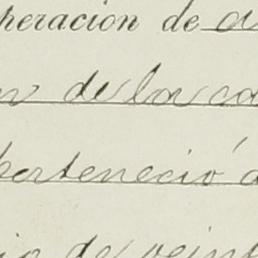 peracion de a
n de la ca
perteneció a
io de veint